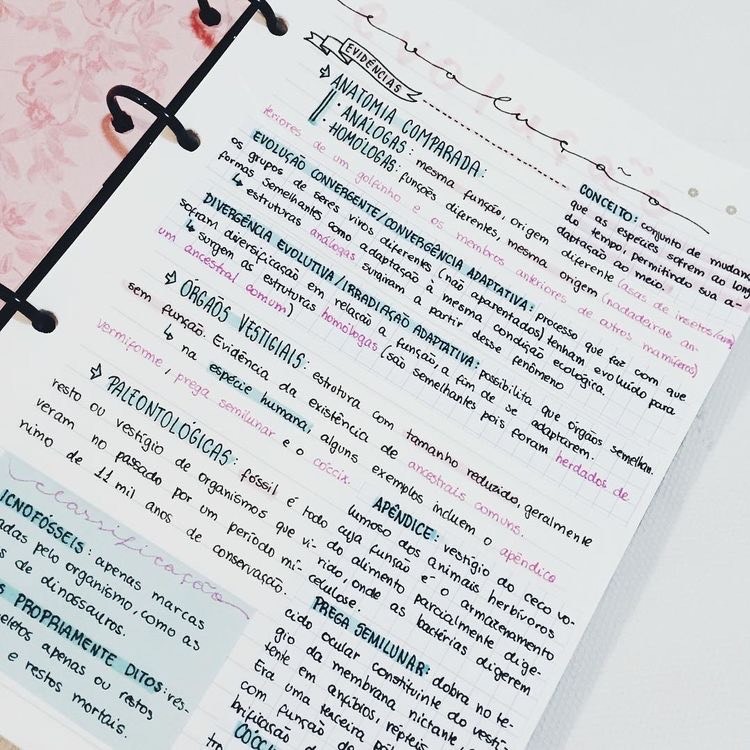 evolução
EVIDÊNCIAS
CONCEITO: conjunto de mudan
que as espécies sofrem ao lon
do tempo, permitindo sua a-
adaptação ao meio.
ANATOMIA COMPARADA:
· ANÁLOGAS: mesma função, origem diferente (asas de insetos/
· HOMÓLOGAS: funções diferentes, mesma origem (nadadeiras an-
teriores de um golfinho e os membros anteriores de outros mamíferos)
EVOLUÇÃO CONVERGENTE/CONVERGÊNCIA ADAPTATIVA: processo que faz com que
os grupos de seres vivos diferentes (não aparentados) tenham evoluído para
formas semelhantes como adaptação à mesma condição ecológica.
↳ estruturas análogas surgiram a partir desse fenômeno
DIVERGÊNCIA EVOLUTIVA/IRRADIAÇÃO ADAPTATIVA: possibilita que órgãos semelhan.
sofram diversificação em relação a função, a fim de se adaptarem.
↳ surgem as estruturas homólogas (são semelhantes pois foram herdados de
um ancestral comum)
ÓRGÃOS VESTIGIAIS: estrutura com tamanho reduzido, geralmente
sem função. Evidência da existência de ancestrais comuns.
↳ na espécie humana, alguns exemplos incluem o apêndice
vermiforme, prega semilunar e o cóccix.
PALEONTOLÓGICAS: fóssil é todo
resto ou vestígio de organismos que vi-
veram no passado por um período mí-
nimo de 11 mil anos de conservação.
classificação
ICNOFÓSSEIS: apenas marcas
adas pelo organismo, como as
s de dinossauros.
S PROPRIAMENTE DITOS: res-
eletos apenas ou restos
e restos mortais.
APÊNDICE: vestígio do ceco vo-
lumoso dos animais herbívoros
cuja função é o armazenamento
do alimento parcialmente dige-
rido, onde as bactérias digerem
celulose.
PREGA SEMILUNAR: dobra no te-
cido ocular constituinte do vestí-
gio da membrana nictante
tente em anfíbios, répteis
Era uma terceira pál
com função de
brificação d
CÓCCI